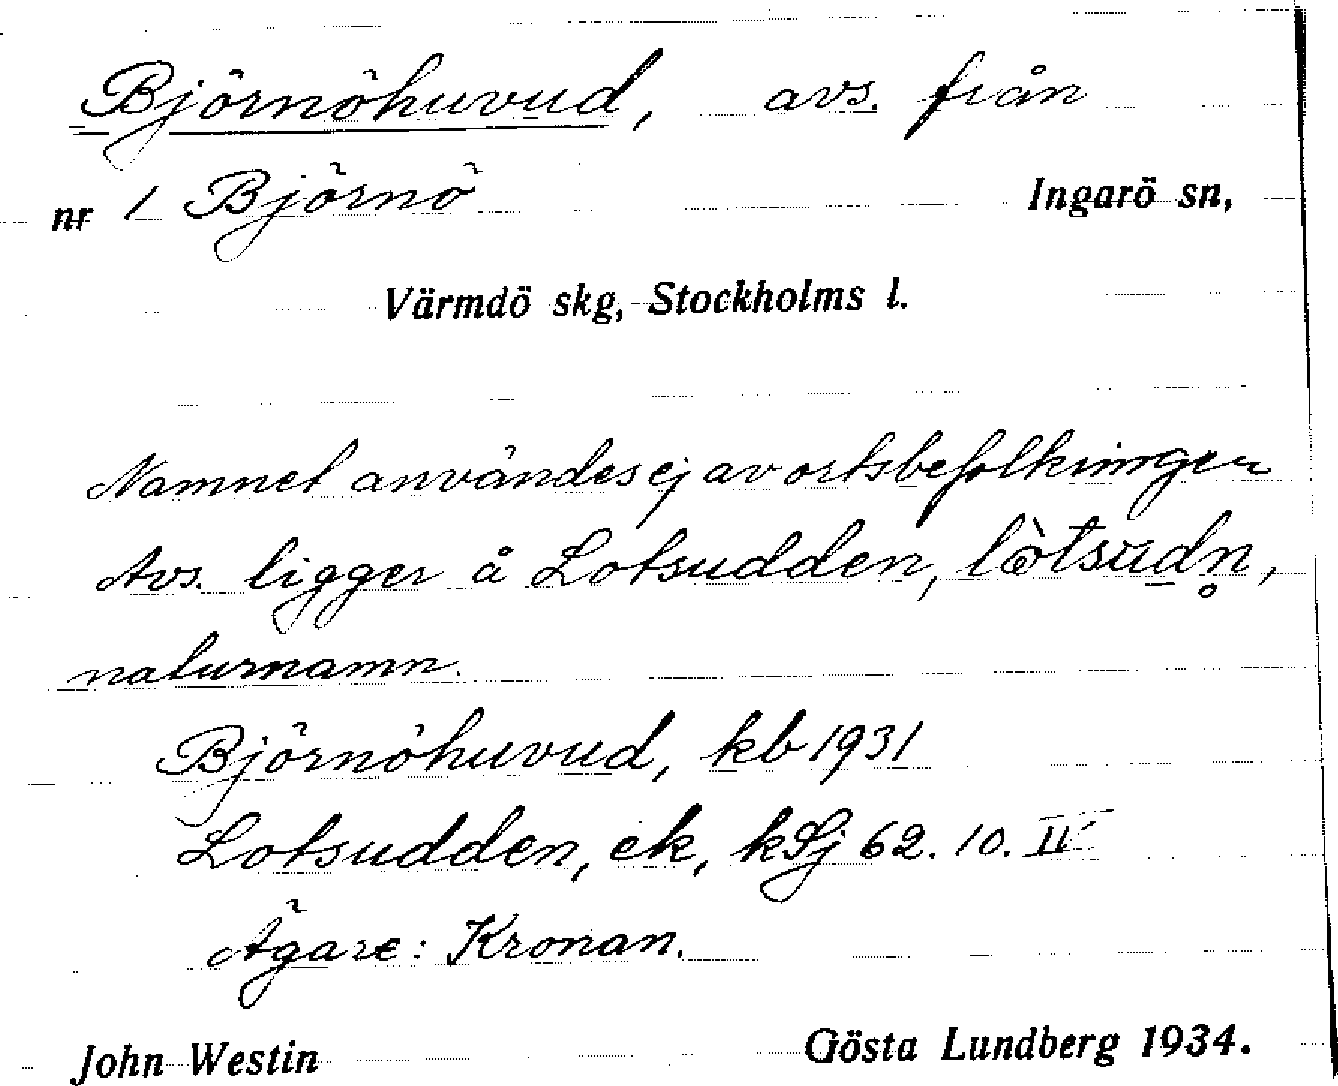 Björnöhuvud, avs. från
nr 1 Björnö Ingarö sn,
Värmdö skg, Stockholms l.
Namnet användes ej av ortsbefolkningen
Avs. ligger å Lotsudden, lòtsudn̥,
naturnamn.
Björnöhuvud, kb 1931
Lotsudden, ek, kSj 62. 10. IV
Ägare: Kronan.
John Westin Gösta Lundberg 1934.